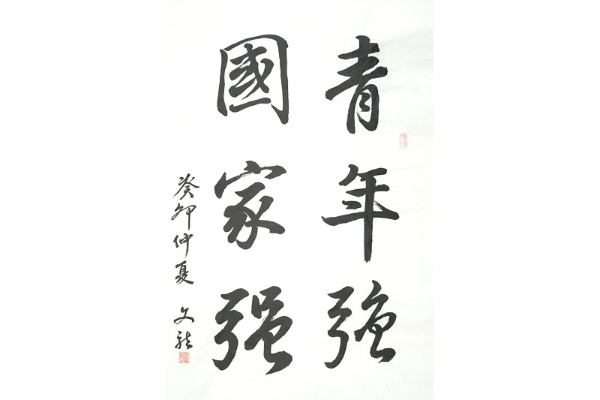 青年強
國家强
癸卯仲夏 文龍